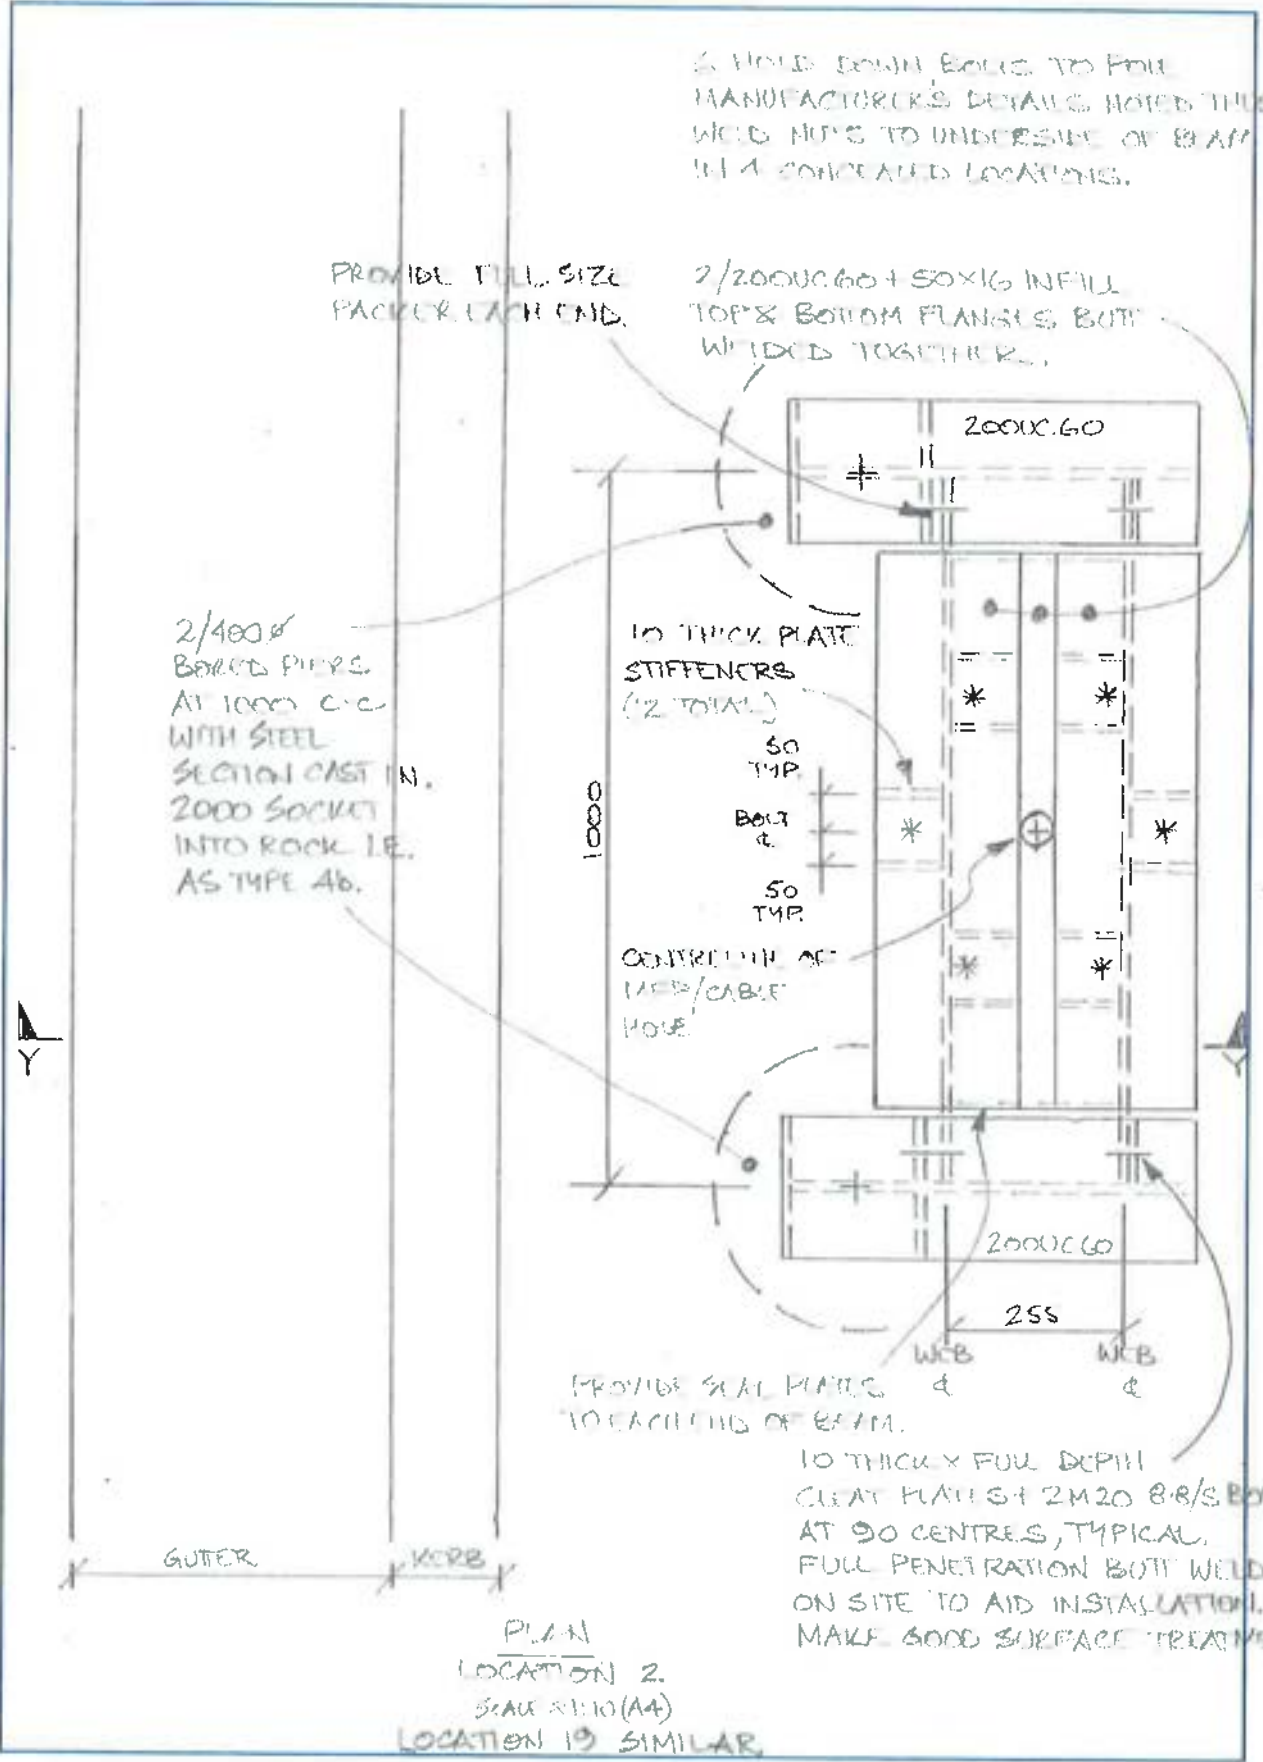 6 HOLD DOWN BOLTS TO POLE
MANUFACTURER'S DETAILS NOTED THUS
WELD NUTS TO UNDERSIDE OF BEAM
IN 4 CONCEALED LOCATIONS.
PROVIDE FULL SIZE
PACKER EACH END.
2/200UC60 + 50X16 INFILL
TOP & BOTTOM FLANGES BUTT
WELDED TOGETHER.
200UC.60
2/400Ø
BORED PIERS
AT 1000 C-C
WITH STEEL
SECTION CAST IN.
2000 SOCKET
INTO ROCK I.E.
AS TYPE A6.
10 THICK PLATE
STIFFENERS
(12 TOTAL)
50
TYP.
BOLT
℄
50
TYP.
1000
CENTRELINE OF
/CABLE
HOLE
Y
Y
200UC60
255
WEB
℄
WEB
℄
PROVIDE SEAL PLATES
TO EACH END OF BEAM.
10 THICK X FULL DEPTH
CLEAT PLATES + 2M20 8.8/S BO
AT 90 CENTRES, TYPICAL.
FULL PENETRATION BUTT WELD
ON SITE TO AID INSTALLATION.
MAKE GOOD SURFACE TREATM
GUTTER
KERB
PLAN
LOCATION 2.
SCALE 1:10 (A4)
LOCATION 19 SIMILAR